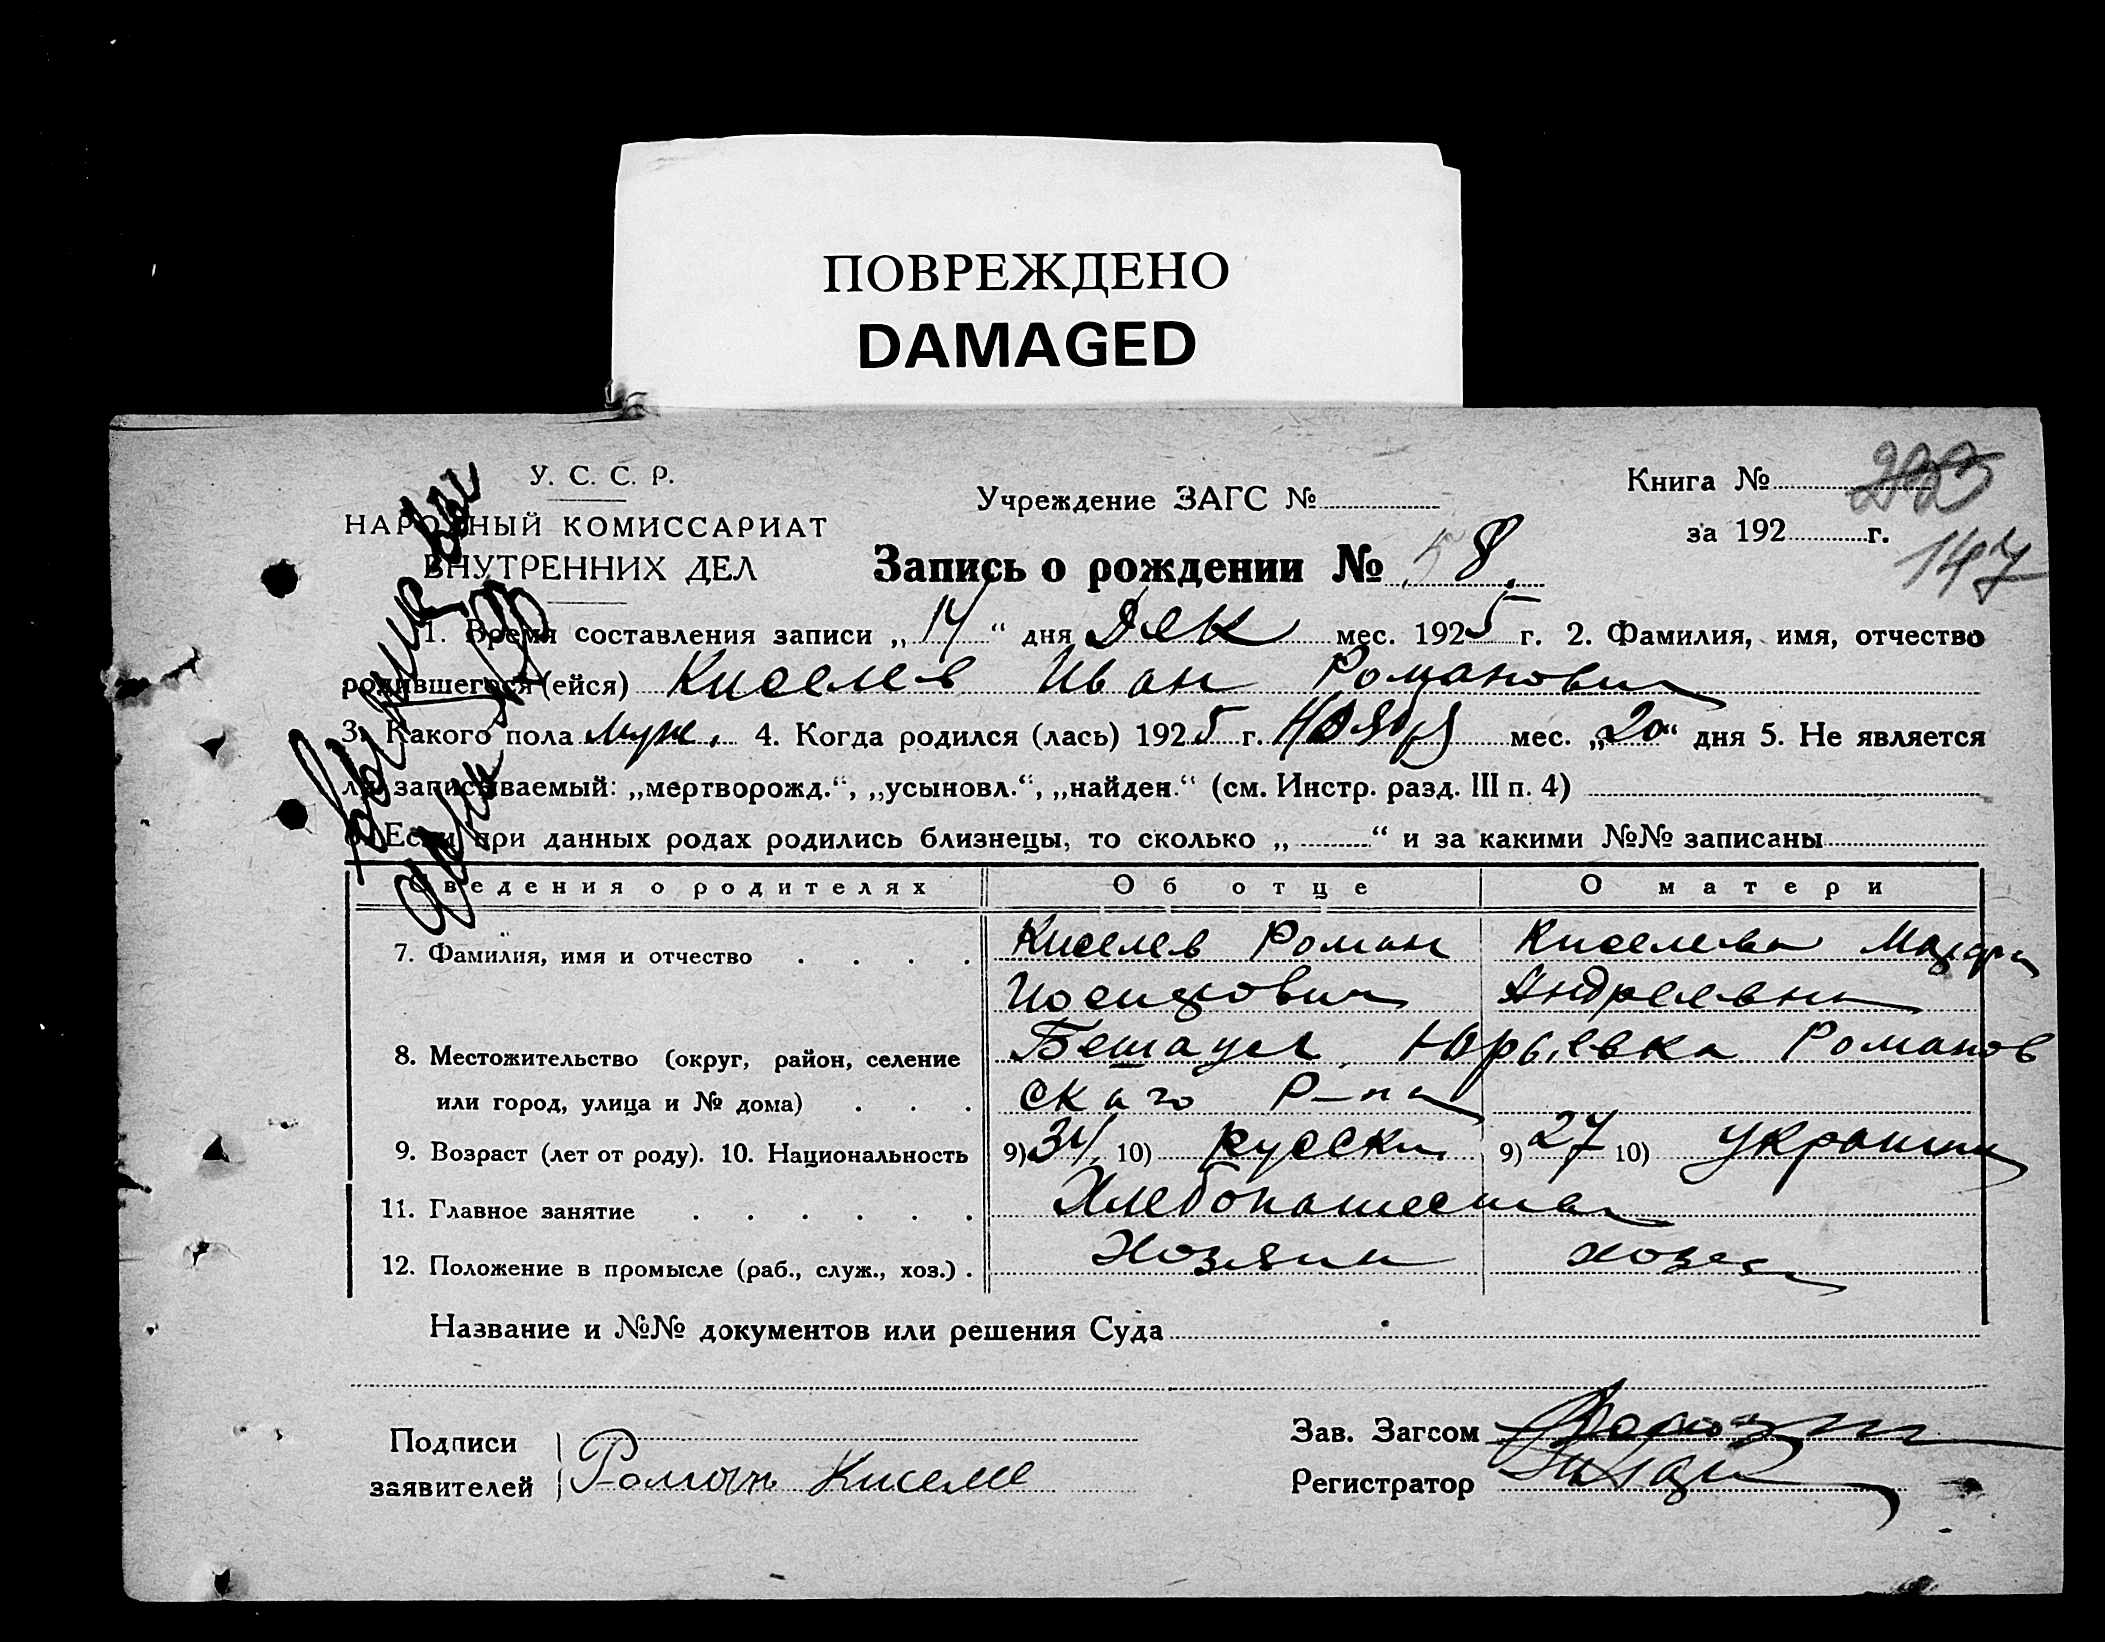 ПОВРЕЖДЕНО
DAMAGED
У. С. С. Р.
НАРОДНЫЙ КОМИССАРИАТ
ВНУТРЕННИХ ДЕЛ
Учреждение ЗАГС №
Книга №
за 192 г.
147
Запись о рождении № 58.
1. Время составления записи „14“ дня Дек мес. 1925 г. 2. Фамилия, имя, отчество
родившегося (ейся) Киселев Иван Романович
3. Какого пола муж. 4. Когда родился (лась) 1925 г. Ноября мес. „20“ дня 5. Не является
ли записываемый: „мертворожд.“, „усыновл.“, „найден.“ (см. Инстр. разд. III п. 4)
6. Если при данных родах родились близнецы, то сколько „ “ и за какими №№ записаны
Сведения о родителях Об отце О матери
7. Фамилия, имя и отчество Киселев Роман Киселева
Иосифович Андреевна
8. Местожительство (округ, район, селение Юрьевка Романов
или город, улица и № дома) скаго Р-на
9. Возраст (лет от роду). 10. Национальность 9) 34 10) русски 9) 27 10) украин
11. Главное занятие Хлебопашество
12. Положение в промысле (раб., служ., хоз.) Хозяин
Название и №№ документов или решения Суда
Подписи
заявителей Роман Киселе
Зав. Загсом
Регистратор